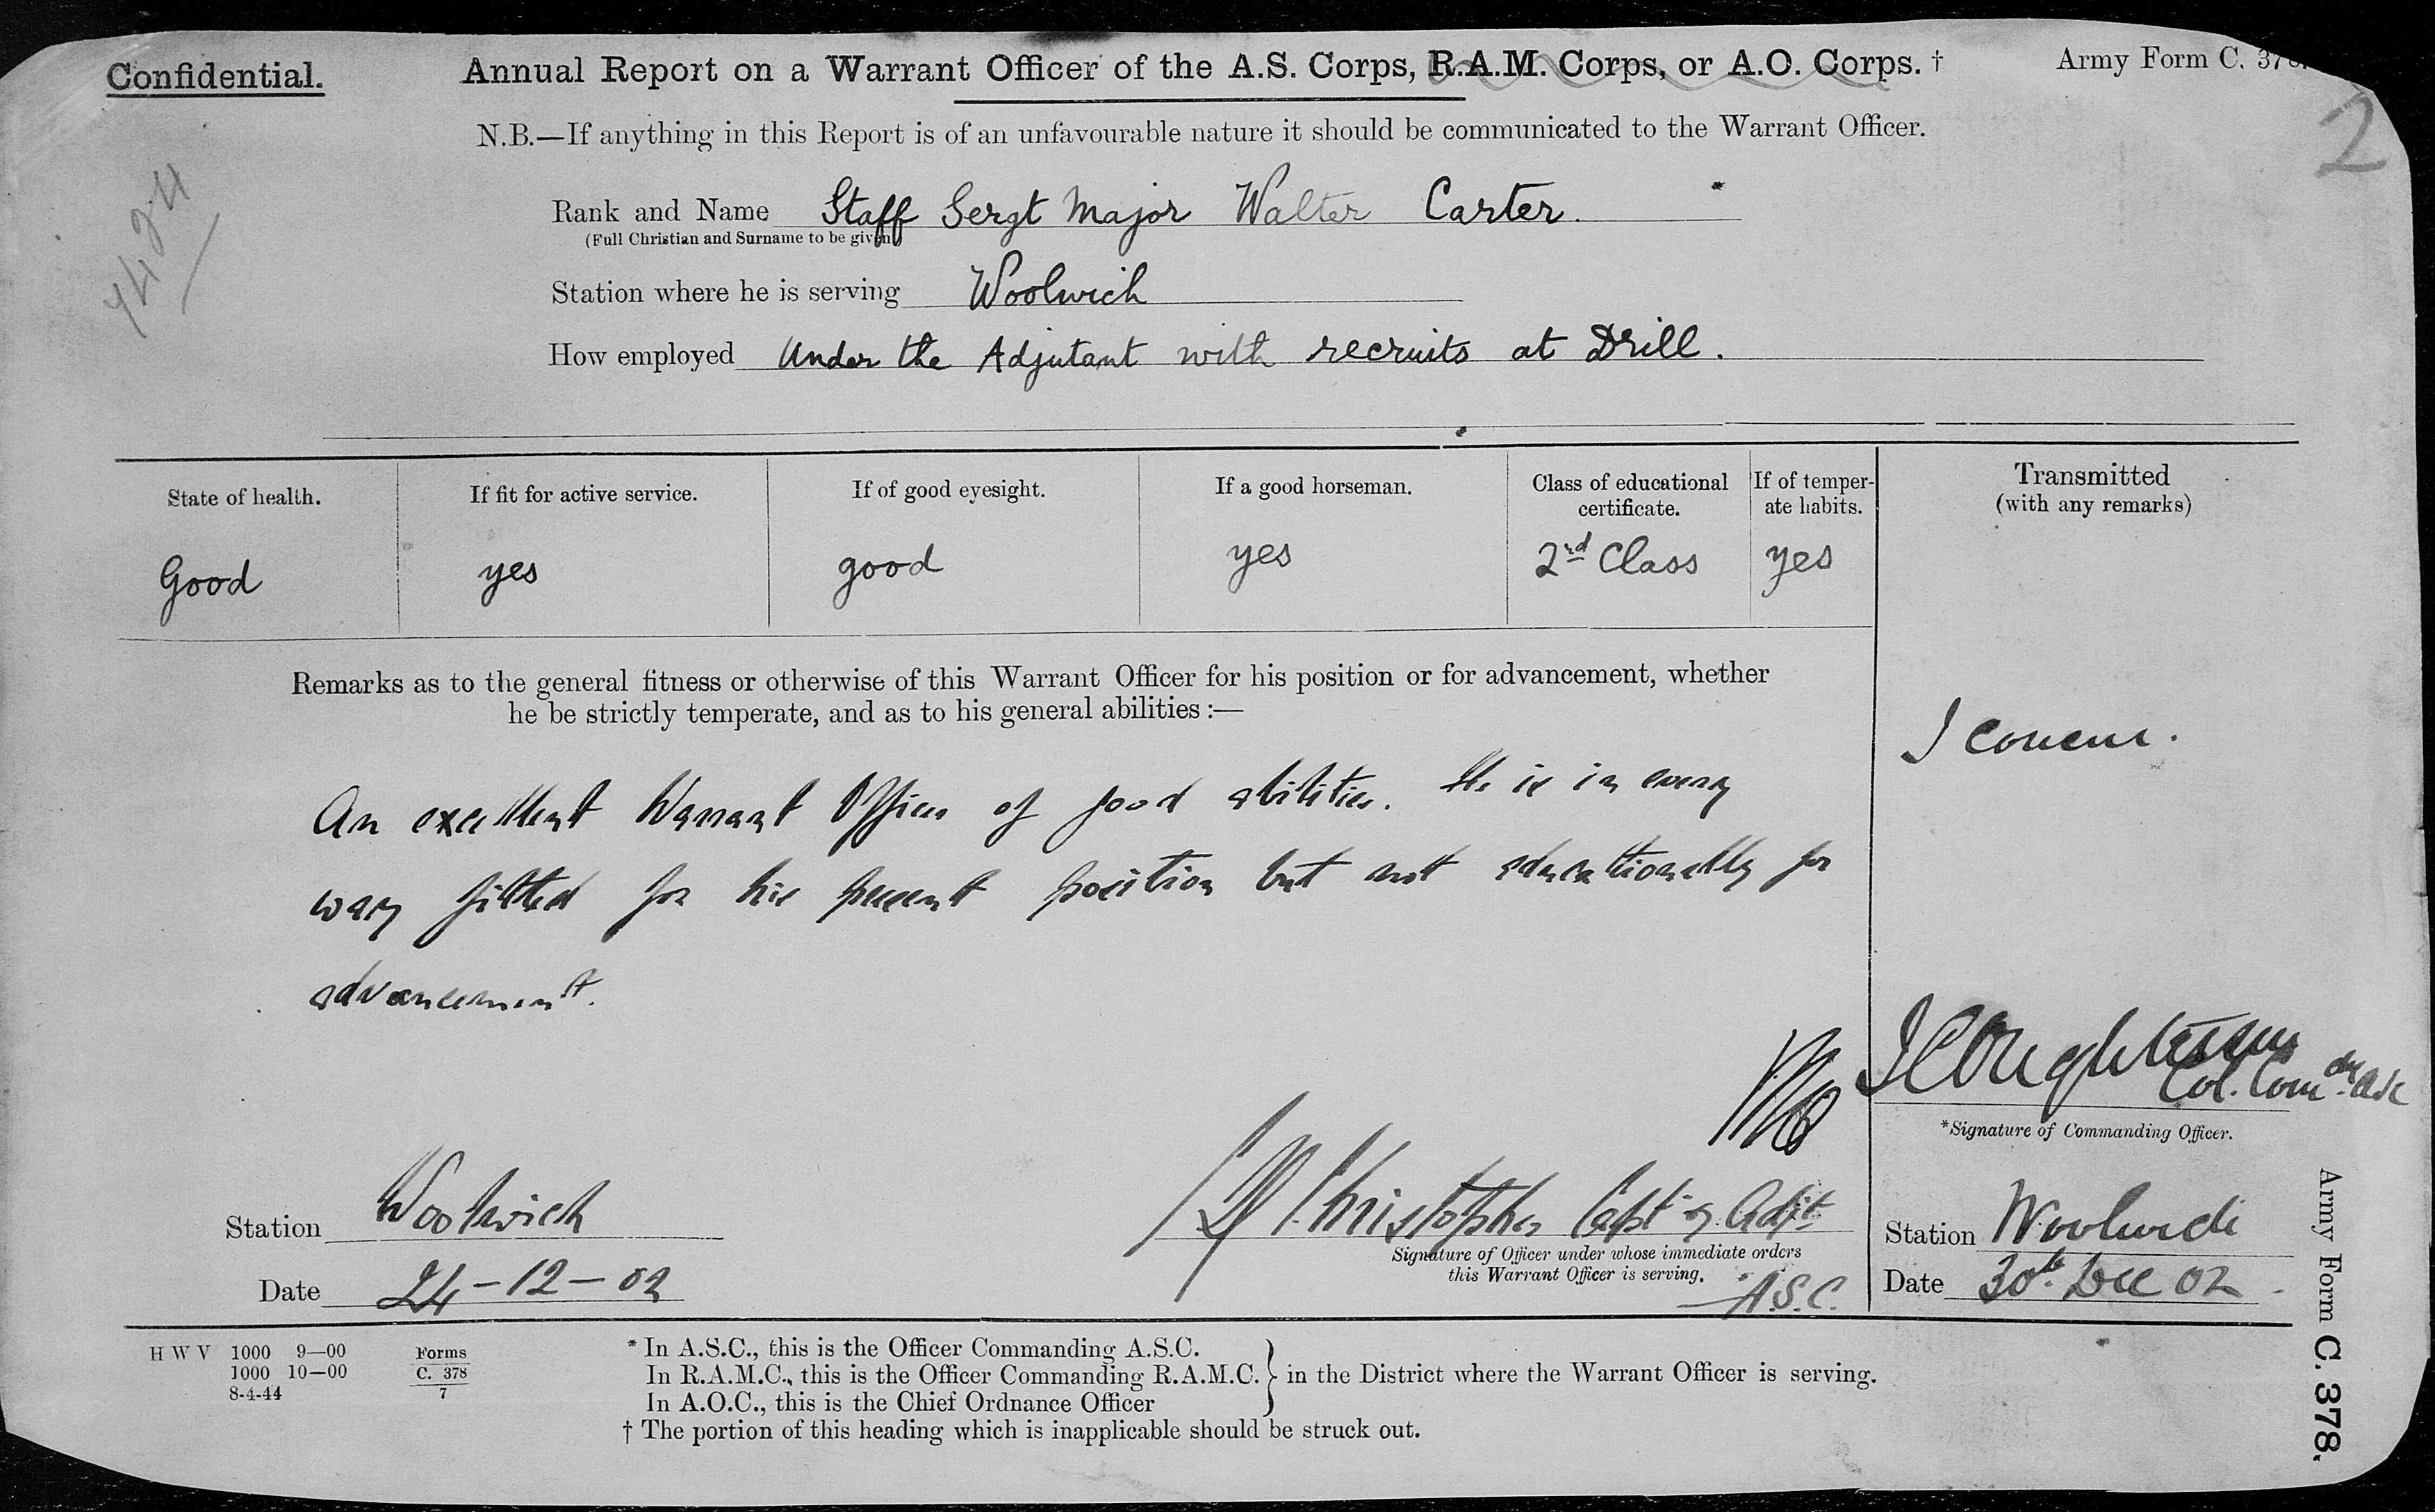 Confidential.
Annual Report on a Warrant Officer of the A.S. Corps, R.A.M. Corps, or A.O. Corps. †
Army Form C. 378.
2
N.B.—If anything in this Report is of an unfavourable nature it should be communicated to the Warrant Officer.
Rank and Name Staff Sergt Major Walter Carter.
(Full Christian and Surname to be given)
Station where he is serving Woolwich
How employed Under the Adjutant with recruits at Drill.
State of health. If fit for active service. If of good eyesight. If a good horseman. Class of educational certificate. If of temper-ate habits.
Good yes good yes 2nd Class yes
Transmitted
(with any remarks)
I concur.
Remarks as to the general fitness or otherwise of this Warrant Officer for his position or for advancement, whether
he be strictly temperate, and as to his general abilities :—
An excellent Warrant Officer of good abilities. He is in every
way fitted for his present position but not educationally for
advancement.
Col. Comdg ASC
*Signature of Commanding Officer.
Station Woolwich
Date 24-12-02
Christopher Capt & Adjt
Signature of Officer under whose immediate orders
this Warrant Officer is serving.
A.S.C.
Station Woolwich
Date 30th Dec 02.
H W V 1000 9—00
1000 10—00
8-4-44
Forms
C. 378
7
* In A.S.C., this is the Officer Commanding A.S.C.
In R.A.M.C., this is the Officer Commanding R.A.M.C. } in the District where the Warrant Officer is serving.
In A.O.C., this is the Chief Ordnance Officer
† The portion of this heading which is inapplicable should be struck out.
Army Form C. 378.